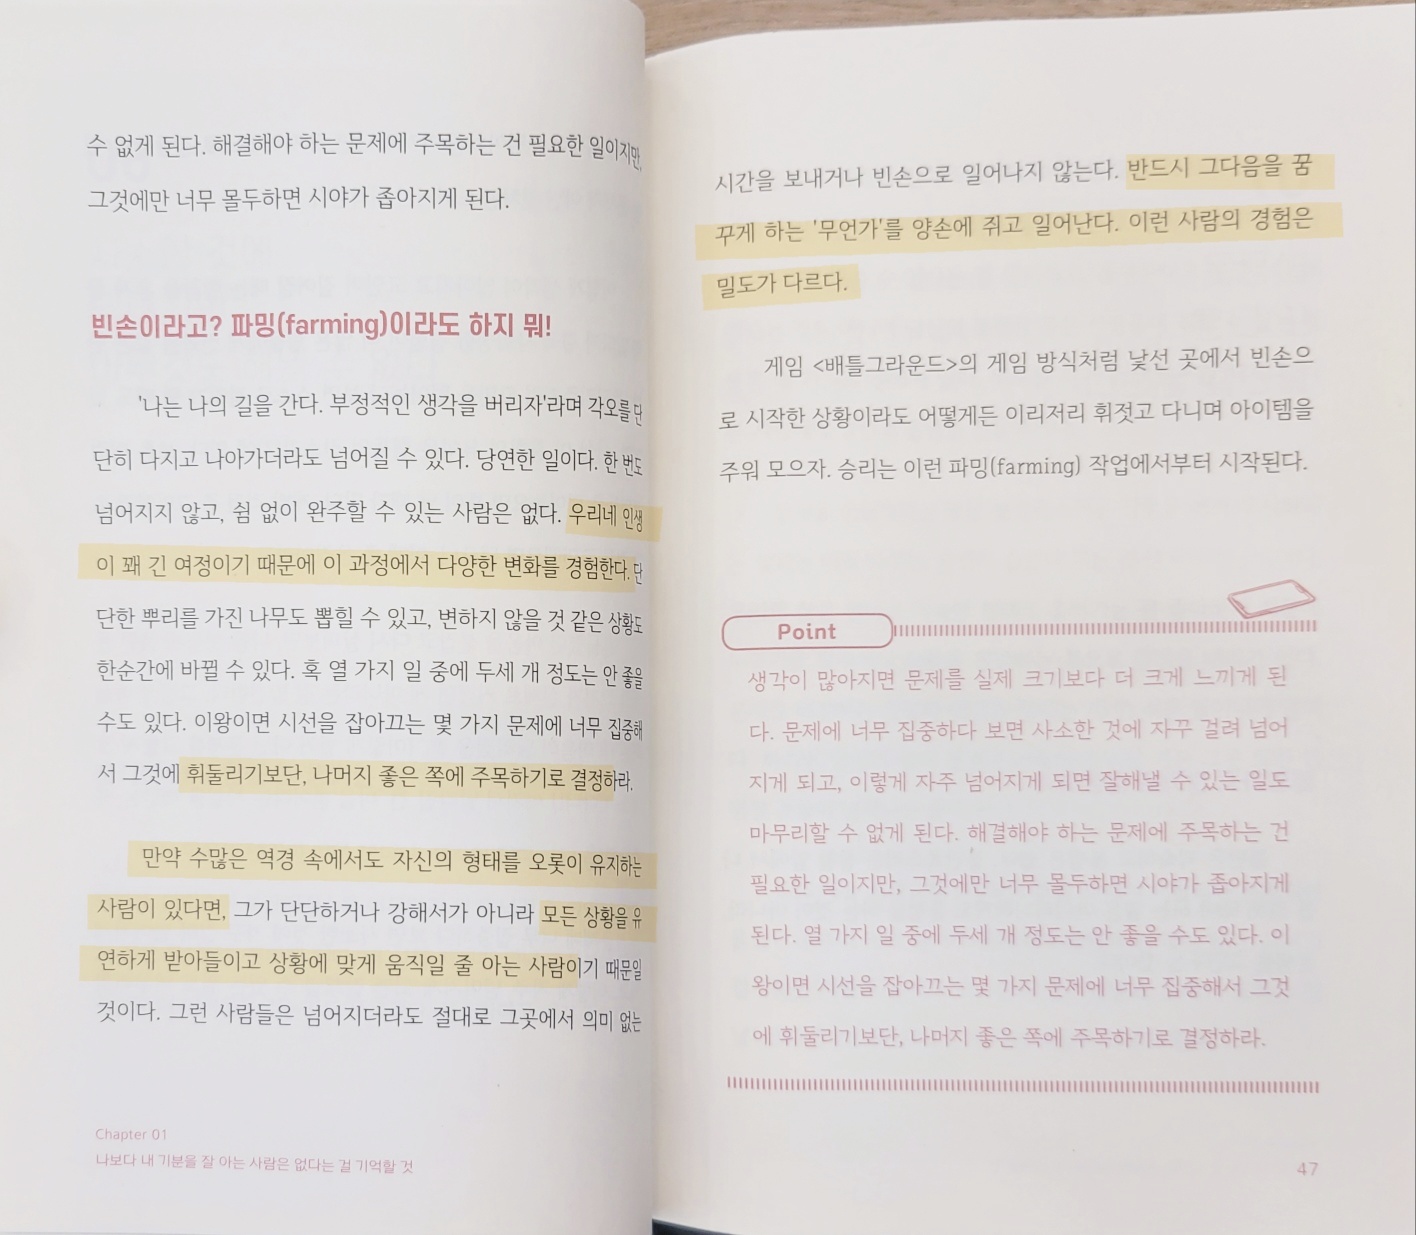 수 없게 된다. 해결해야 하는 문제에 주목하는 건 필요한 일이지만,
그것에만 너무 몰두하면 시야가 좁아지게 된다.
빈손이라고? 파밍(farming)이라도 하지 뭐!
'나는 나의 길을 간다. 부정적인 생각을 버리자'라며 각오를 단
단히 다지고 나아가더라도 넘어질 수 있다. 당연한 일이다. 한 번도
넘어지지 않고, 쉼 없이 완주할 수 있는 사람은 없다. 우리네 인생
이 꽤 긴 여정이기 때문에 이 과정에서 다양한 변화를 경험한다. 단
단한 뿌리를 가진 나무도 뽑힐 수 있고, 변하지 않을 것 같은 상황도
한순간에 바뀔 수 있다. 혹 열 가지 일 중에 두세 개 정도는 안 좋을
수도 있다. 이왕이면 시선을 잡아끄는 몇 가지 문제에 너무 집중해
서 그것에 휘둘리기보단, 나머지 좋은 쪽에 주목하기로 결정하라.
만약 수많은 역경 속에서도 자신의 형태를 오롯이 유지하는
사람이 있다면, 그가 단단하거나 강해서가 아니라 모든 상황을 유
연하게 받아들이고 상황에 맞게 움직일 줄 아는 사람이기 때문일
것이다. 그런 사람들은 넘어지더라도 절대로 그곳에서 의미 없는
Chapter 01
나보다 내 기분을 잘 아는 사람은 없다는 걸 기억할 것
시간을 보내거나 빈손으로 일어나지 않는다. 반드시 그다음을 꿈
꾸게 하는 '무언가'를 양손에 쥐고 일어난다. 이런 사람의 경험은
밀도가 다르다.
게임 <배틀그라운드>의 게임 방식처럼 낯선 곳에서 빈손으
로 시작한 상황이라도 어떻게든 이리저리 휘젓고 다니며 아이템을
주워 모으자. 승리는 이런 파밍(farming) 작업에서부터 시작된다.
Point
생각이 많아지면 문제를 실제 크기보다 더 크게 느끼게 된
다. 문제에 너무 집중하다 보면 사소한 것에 자꾸 걸려 넘어
지게 되고, 이렇게 자주 넘어지게 되면 잘해낼 수 있는 일도
마무리할 수 없게 된다. 해결해야 하는 문제에 주목하는 건
필요한 일이지만, 그것에만 너무 몰두하면 시야가 좁아지게
된다. 열 가지 일 중에 두세 개 정도는 안 좋을 수도 있다. 이
왕이면 시선을 잡아끄는 몇 가지 문제에 너무 집중해서 그것
에 휘둘리기보단, 나머지 좋은 쪽에 주목하기로 결정하라.
47